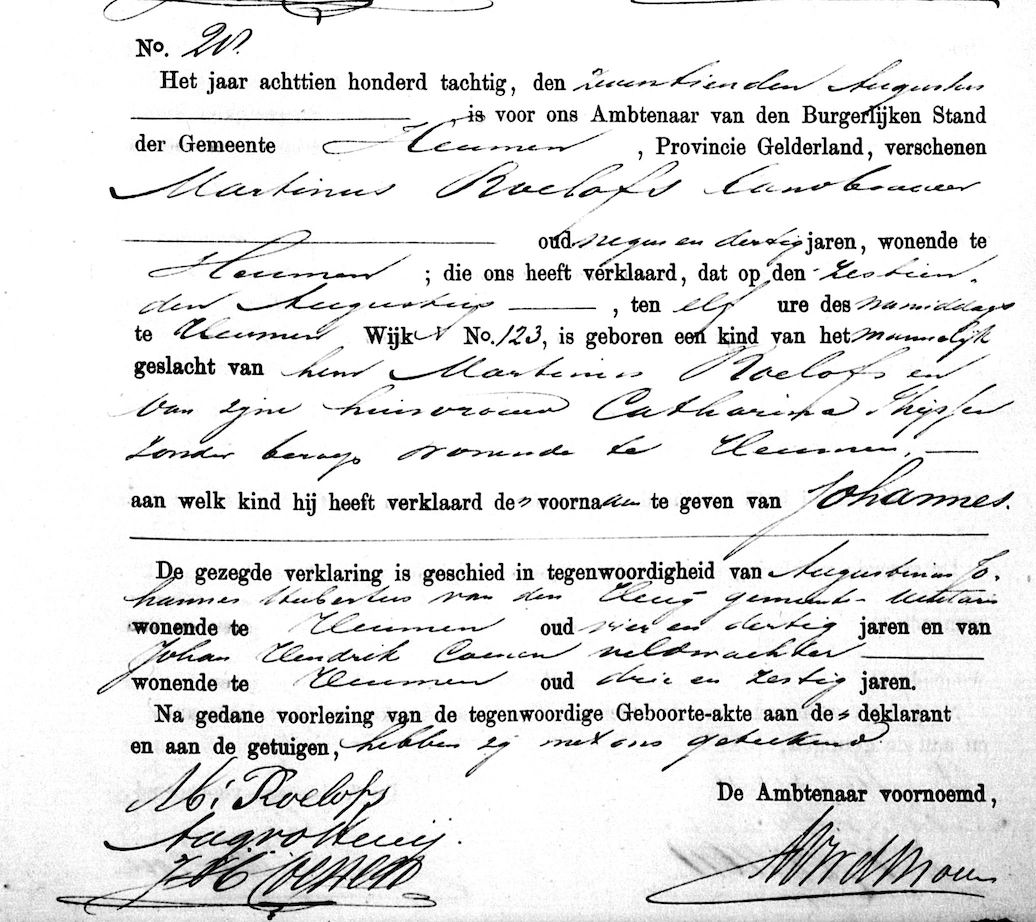 No. 20.
Het jaar achttien honderd tachtig, den zeventienden Augustus
is voor ons Ambtenaar van den Burgerlijken Stand
der Gemeente Heumen, Provincie Gelderland, verschenen
Martinus Roelofs landbouwer
oud negen en dertig jaren, wonende te
Heumen; die ons heeft verklaard, dat op den zestien
den Augustus, ten elf ure des namiddags
te Heumen Wijk No. 123, is geboren een kind van het mannelijk
geslacht van hem Martinus Roelofs en
van zijne huisvrouw Catharina Thijssen
zonder beroep wonende te Heumen,
aan welk kind hij heeft verklaard de voornaam te geven van Johannes.
De gezegde verklaring is geschied in tegenwoordigheid van Augustinus Jo-
hannes Hubertus van den gemeente-
wonende te Heumen oud vier en dertig jaren en van
Johan Hendrik Coenen veldwachter
wonende te Heumen oud drie en zestig jaren.
Na gedane voorlezing van de tegenwoordige Geboorte-akte aan de deklarant
en aan de getuigen, hebben zij met ons geteekend
M: Roelofs
De Ambtenaar voornoemd,
JH Coenen